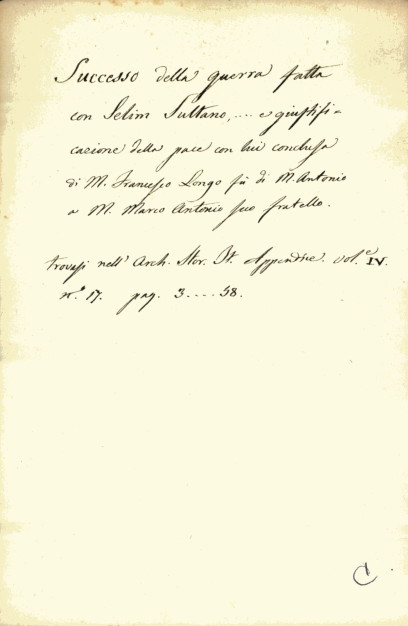 Successo della guerra fatta
con Selim Sultano, .... e giustifi-
cazione della pace con lui conclusa
di M. Francesco Longo fù di M. Antonio
a M. Marco Antonio suo fratello.
trovasi nell' Arch. Stor. It. Appendice. vol.e IV.
n.o 17. pag. 3 .... 58.
C